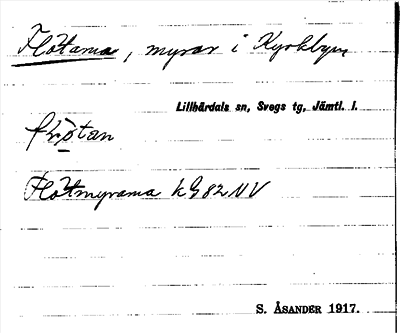 Flötarna, myrar i Kyrkbyn
Lillhärdals sn, Svegs tg, Jämtl. l.
Flötmyrarna k G 82 NV
S. ÅSANDER 1917.